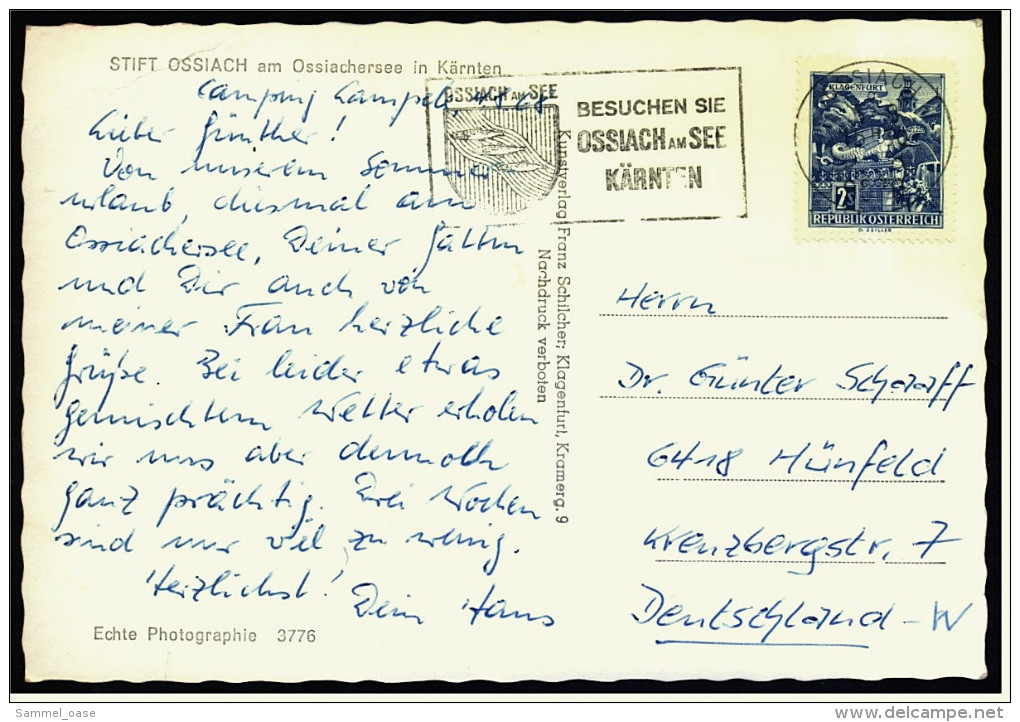 STIFT OSSIACH am Ossiachersee in Kärnten
Camping Kampele, 4.8.68
Lieber Günther!
Von unserem Sommer-
urlaub, diesmal am
Ossiachersee, Deiner Gattin
und Dir auch von
meiner Frau herzliche
Grüße. Bei leider etwas
gemischtem Wetter erholen
wir uns aber dennoch
ganz prächtig. Drei Wochen
sind nur viel zu wenig.
Herzlichst!
Dein Hans
Echte Photographie 3776
Kunstverlag Franz Schilcher, Klagenfurt, Kramerg. 9
Nachdruck verboten
OSSIACH AM SEE
BESUCHEN SIE
OSSIACH AM SEE
KÄRNTEN
OSSIACH
KLAGENFURT
2S
REPUBLIK ÖSTERREICH
Herrn
Dr. Günter Schaaff
6418 Hünfeld
Kreuzbergstr. 7
Deutschland-W
Sammel_oase
www.delcampe.net